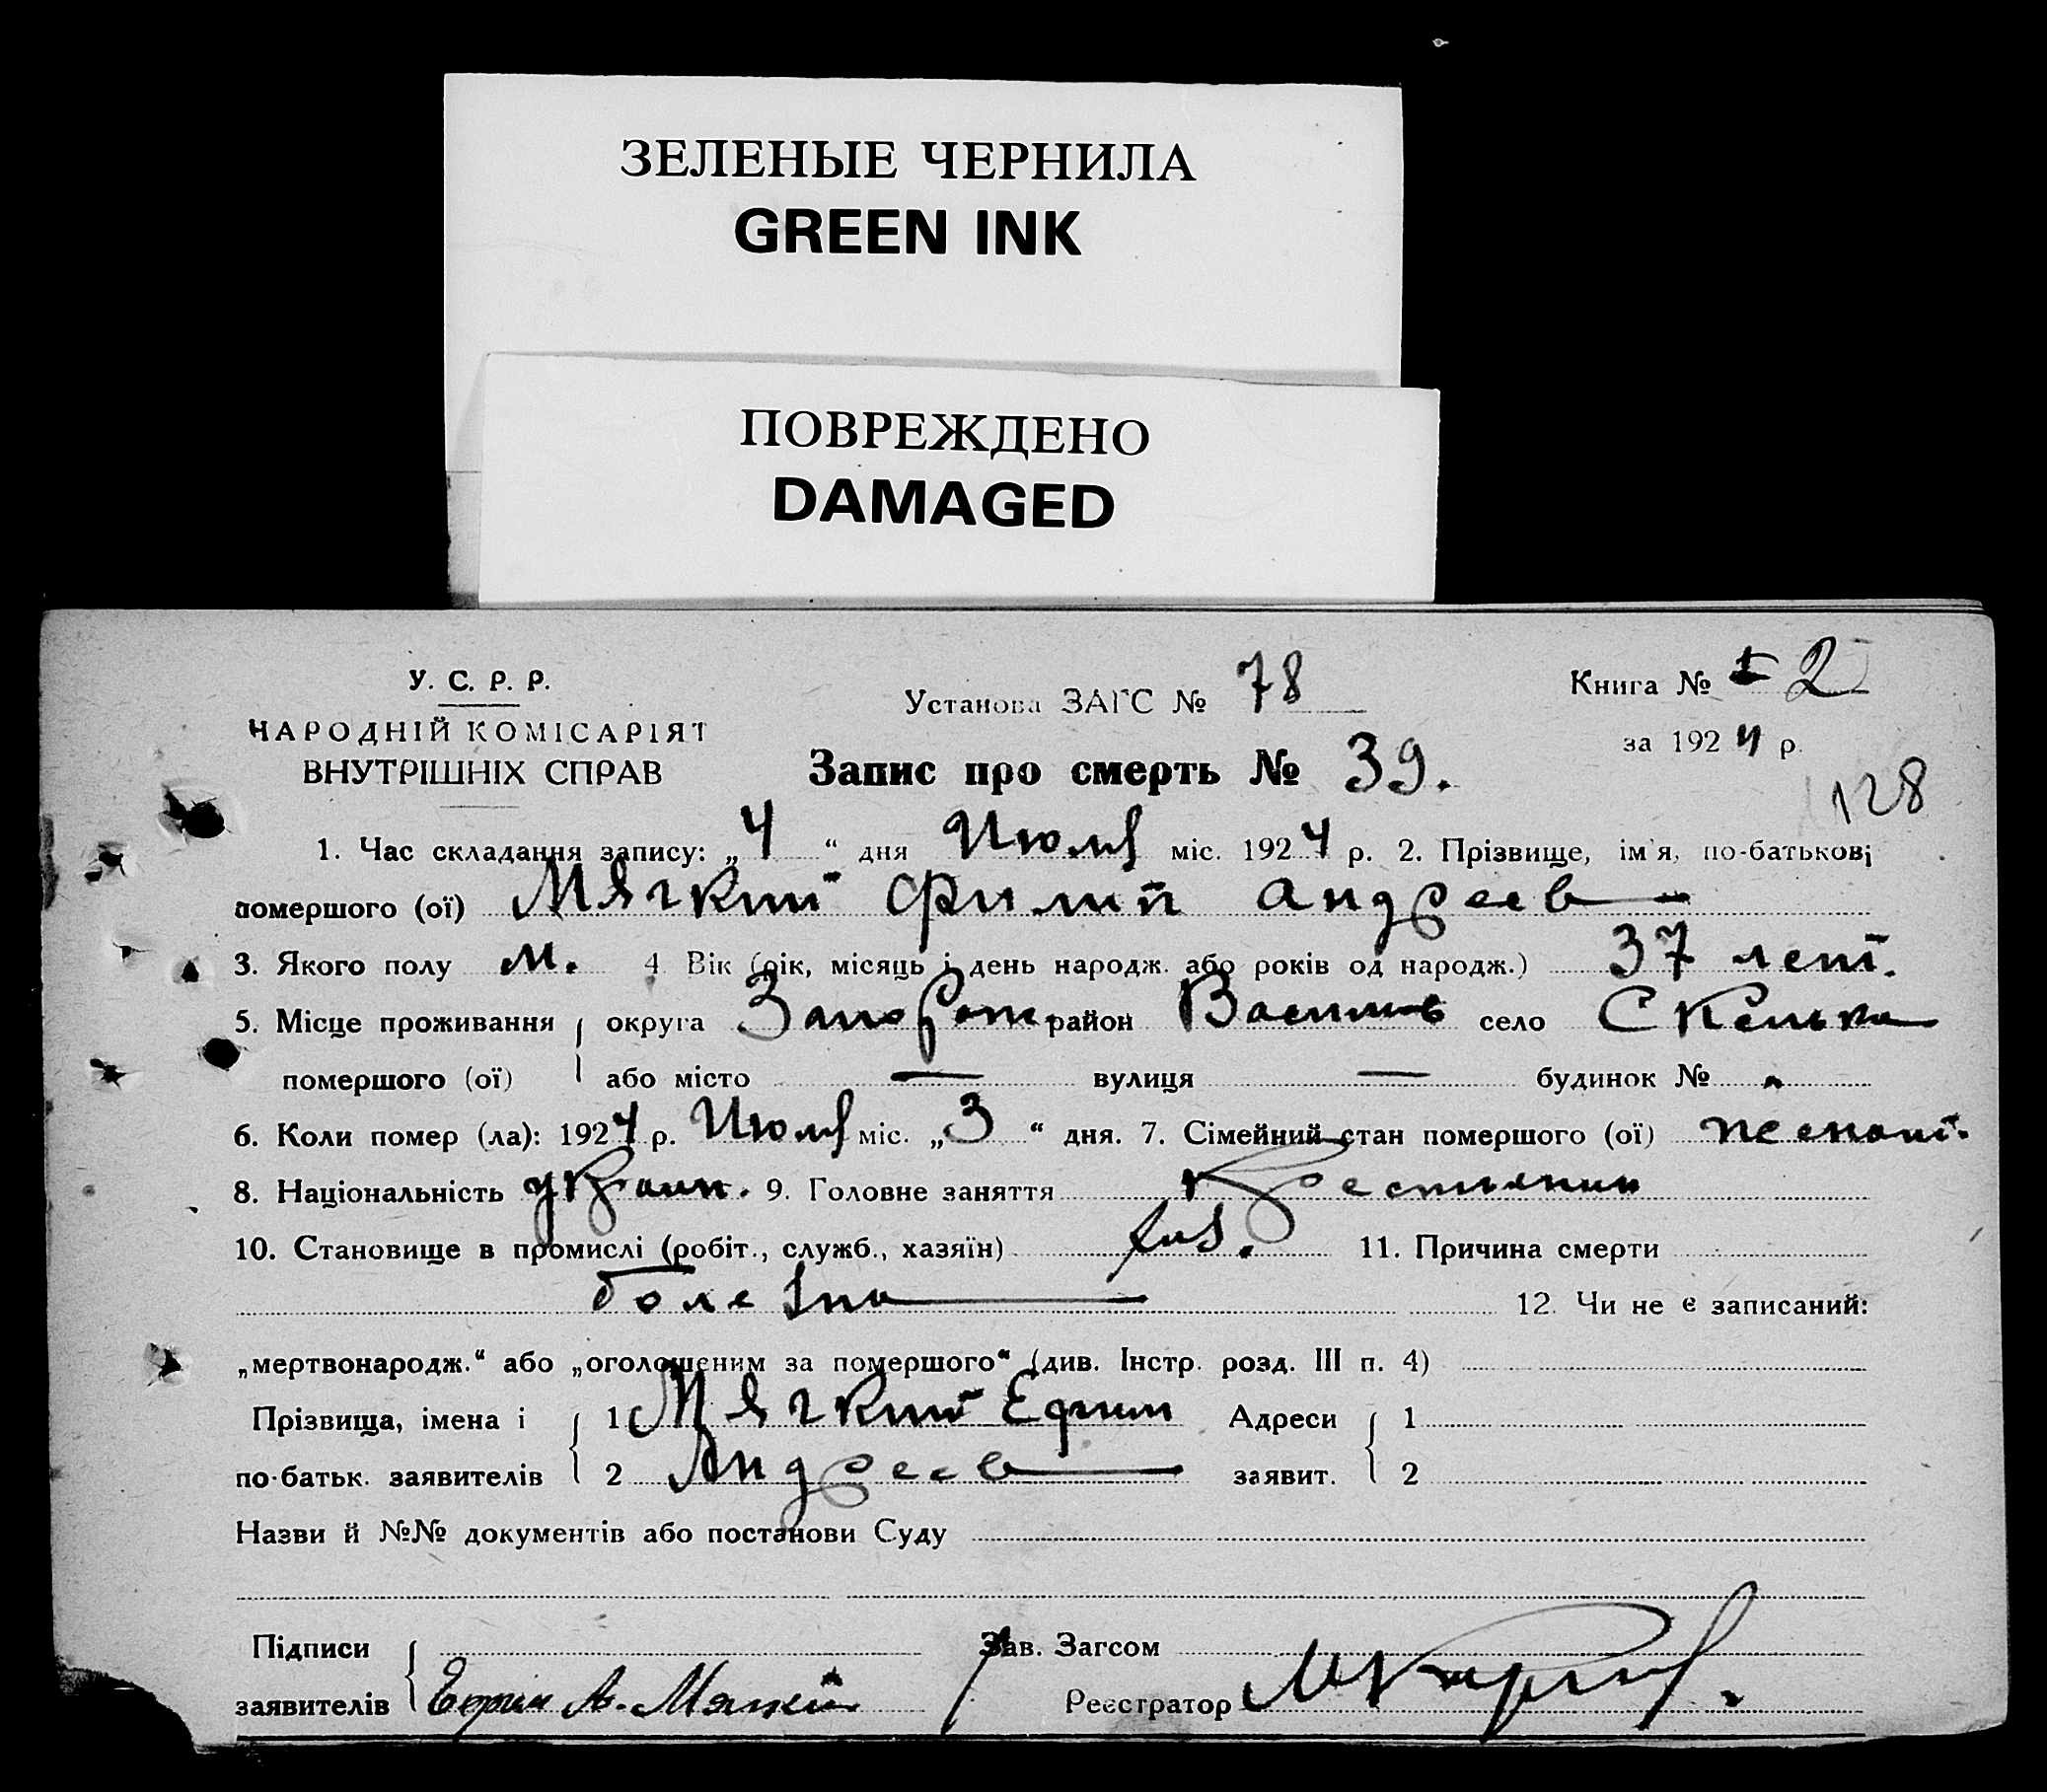 ЗЕЛЕНЫЕ ЧЕРНИЛА
GREEN INK
ПОВРЕЖДЕНО
DAMAGED
У. С. Р. Р.
НАРОДНІЙ КОМІСАРІЯТ
ВНУТРІШНІХ СПРАВ
Установа ЗАГС № 78
Книга № 2
за 1924 р.
Запис про смерть № 39.
128
1. Час складання запису: „4“ дня Июля міс. 1924 р. 2. Прізвище, ім'я, по-батькові
помершого (ої) Мягкий Филип Андреев
3. Якого полу м. 4 Вік (рік, місяць і день народж. або років од народж.) 37 лет.
5. Місце проживання округа Запорож район Васильев село Скелька
помершого (ої) або місто — вулиця — будинок №
6. Коли помер (ла): 1924 р. Июля міс. „3“ дня. 7. Сімейний стан помершого (ої) женат.
8. Національність украин. 9. Головне заняття крестянин
10. Становище в промислі (робіт., служб., хазяїн) 11. Причина смерти
болезнь 12. Чи не є записаний:
„мертвонародж.“ або „оголошеним за помершого“ (див. Інстр. розд. III п. 4)
Прізвища, імена і 1 Мягкий Ефим Адреси 1
по-батьк. заявителів 2 Андреев заявит. 2
Назви й №№ документів або постанови Суду
Підписи Зав. Загсом
заявителів Ефим А. Мягкий Реєстратор